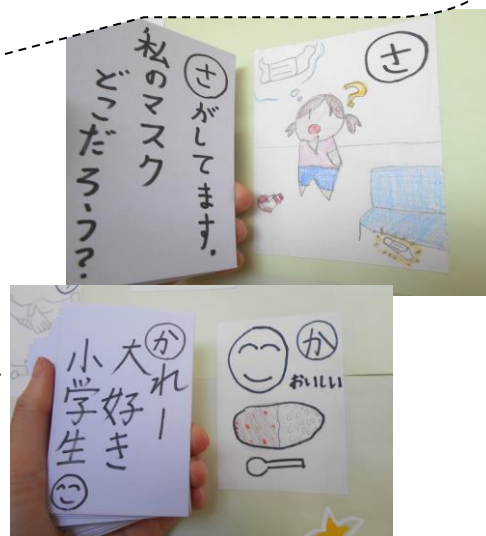 さがしてます。
私のマスク
どこだろう?
さ
?
かれー
大好き
小学生
か
おいしい